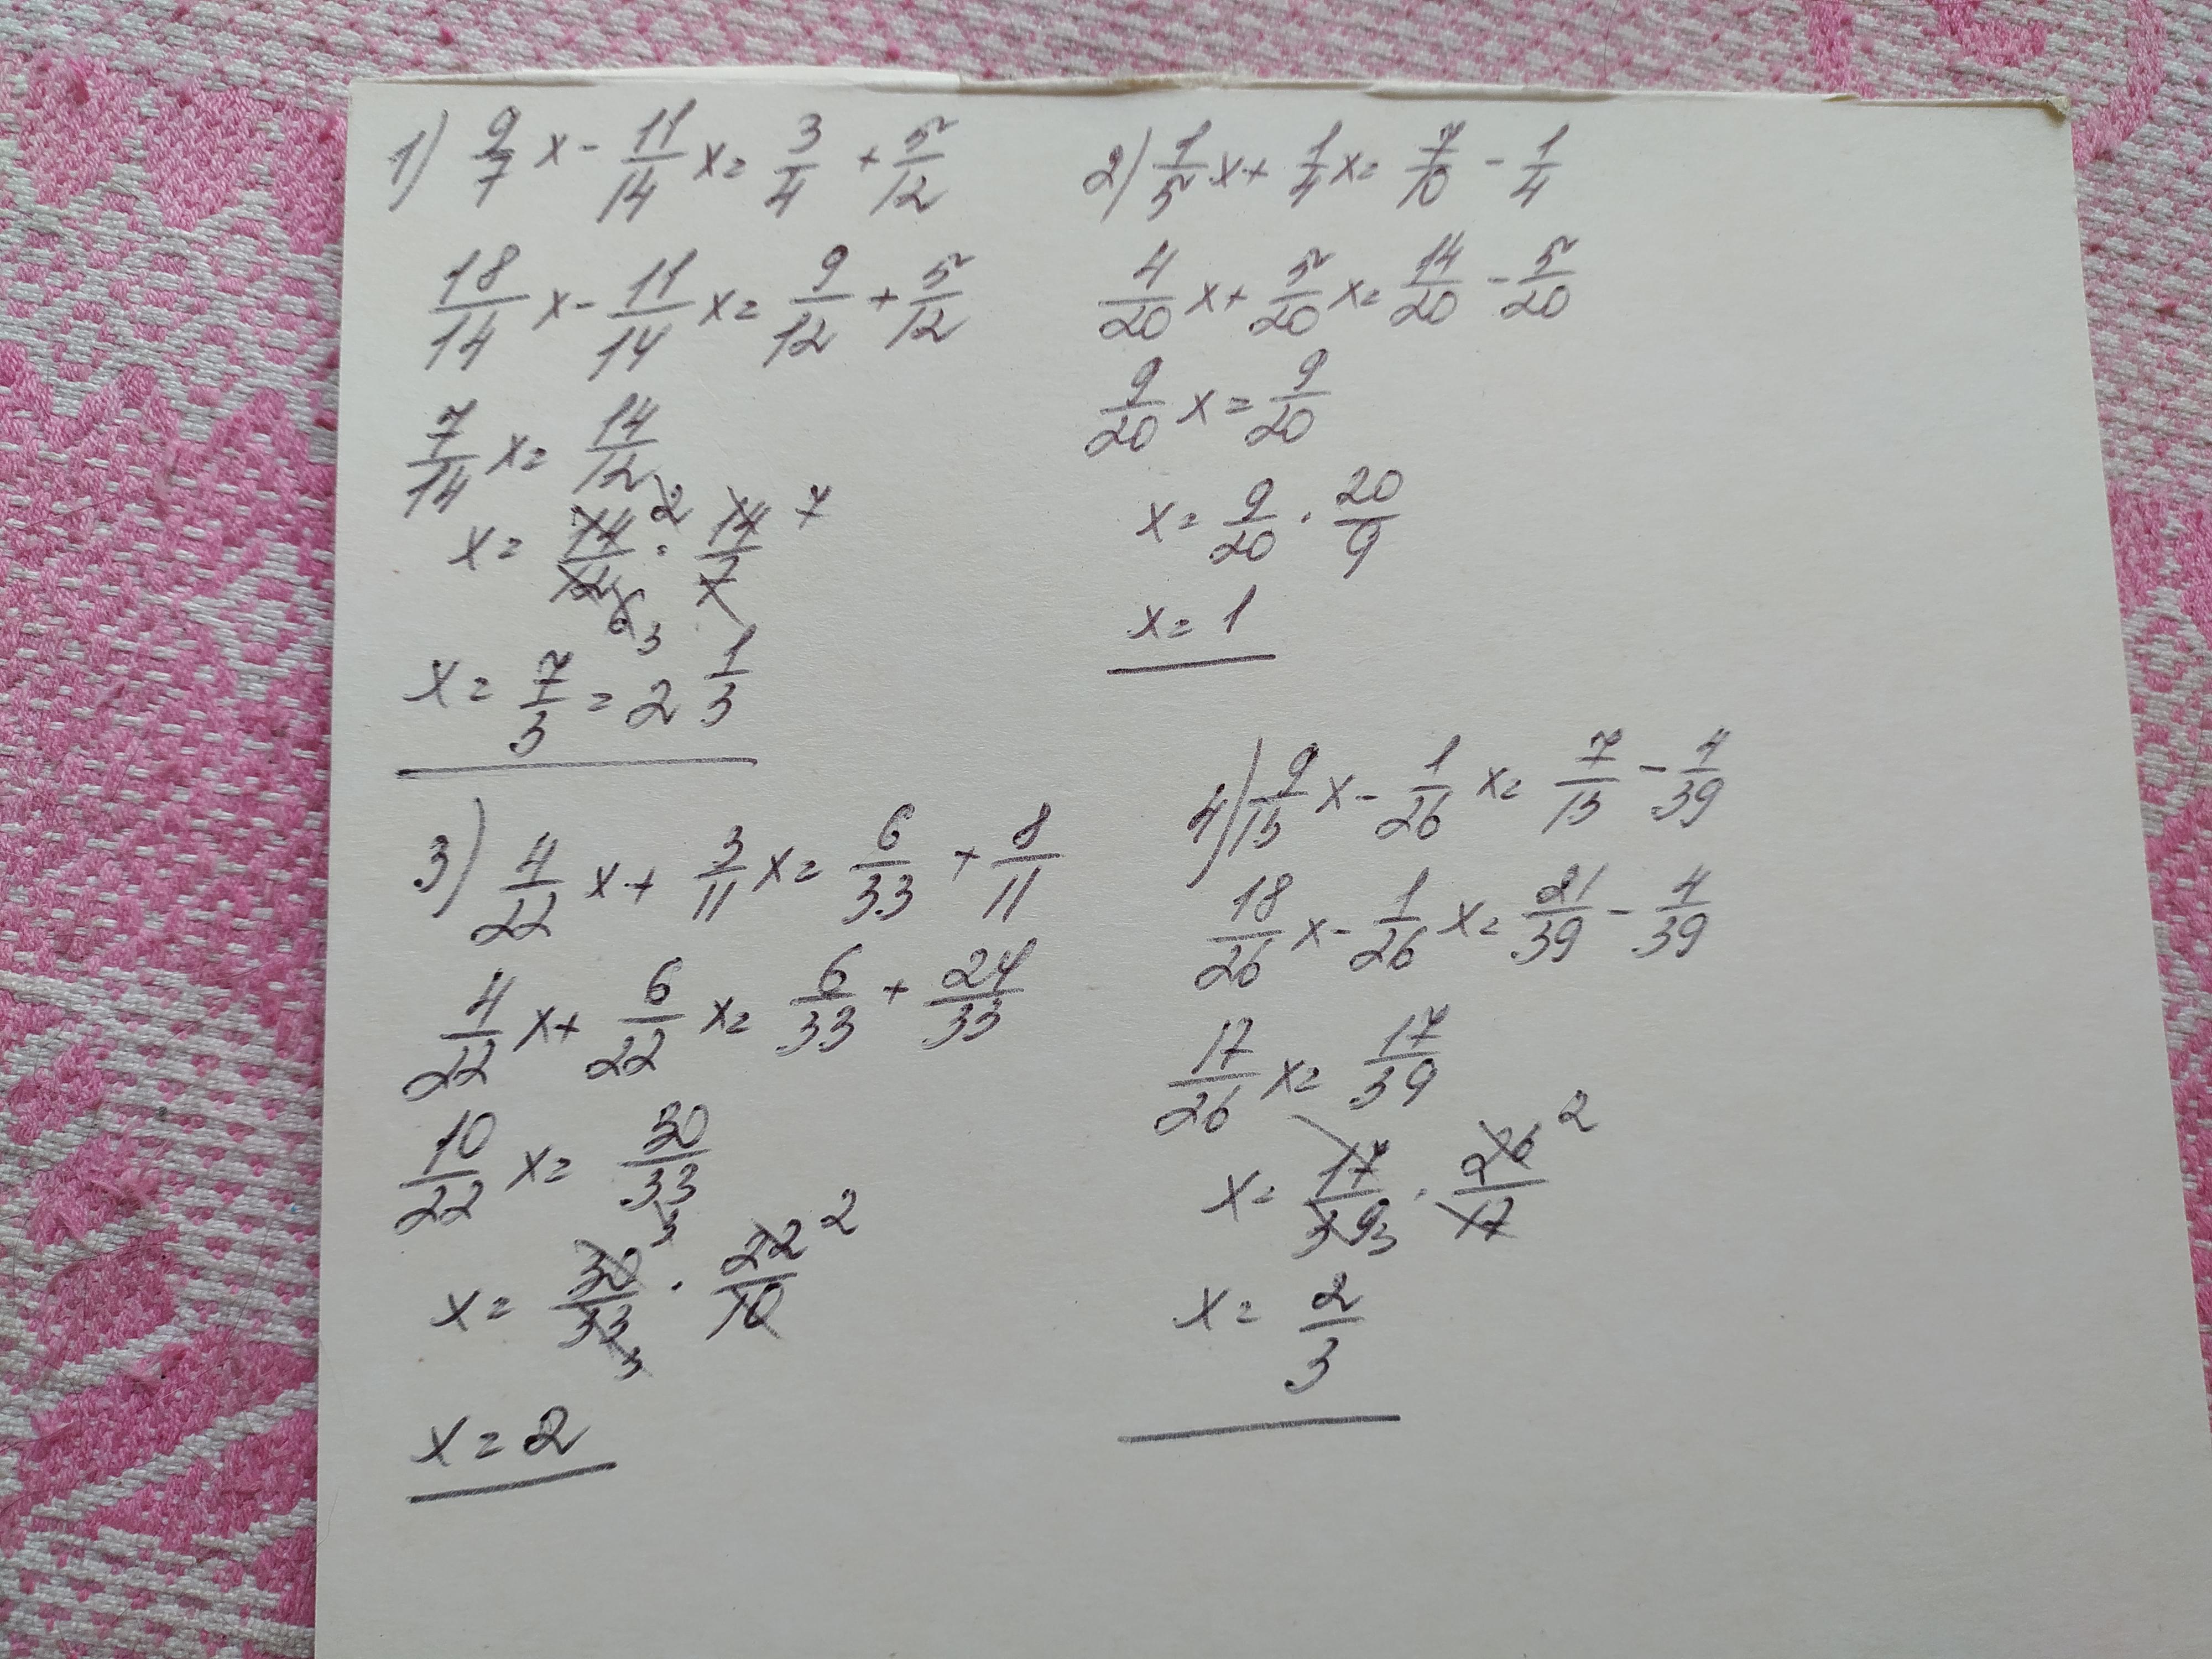 1) 9/7 x - 11/14 x = 3/4 + 5/12
18/14 x - 11/14 x = 9/12 + 5/12
7/14 x = 14/12
x = 14/12 6 3 · 14/7 2 7
x = 7/3 = 2 1/3
2) 1/5 x + 1/4 x = 7/10 - 1/4
4/20 x + 5/20 x = 14/20 - 5/20
9/20 x = 9/20
x = 9/20 · 20/9
x = 1
3) 4/22 x + 3/11 x = 6/33 + 8/11
4/22 x + 6/22 x = 6/33 + 24/33
10/22 x = 30/33
x = 30 3/33 3 · 22 2/10
x = 2
4) 9/13 x - 1/26 x = 7/13 - 4/39
18/26 x - 1/26 x = 21/39 - 4/39
17/26 x = 17/39
x = 17/39 3 · 26 2/17
x = 2/3